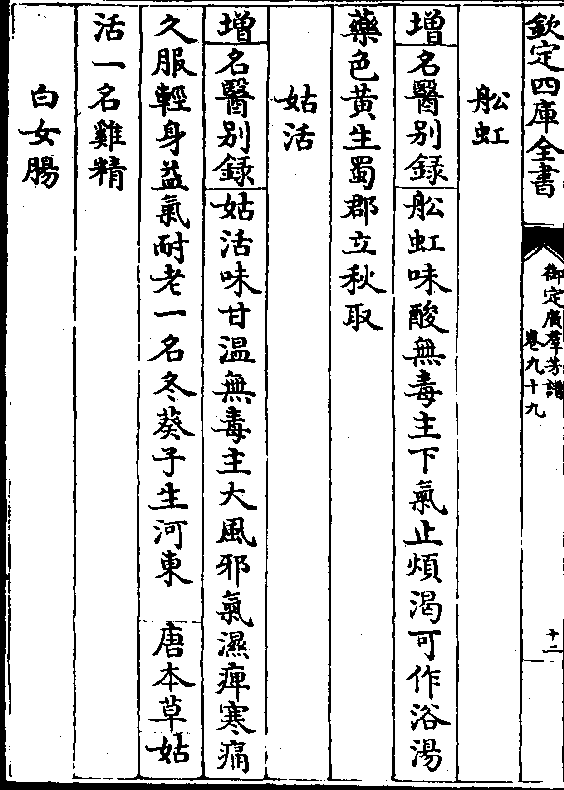 欽定四庫全書
御定廣羣芳譜
卷九十九
十二
舩虹
增名醫别録舩虹味酸無毒主下氣止煩渴可作浴湯
藥色黄生蜀郡立秋取
姑活
增名醫别録姑活味甘溫無毒主大風邪氣濕痺寒痛
久服輕身益氣耐老一名冬葵子生河東 唐本草姑
活一名雞精
白女腸